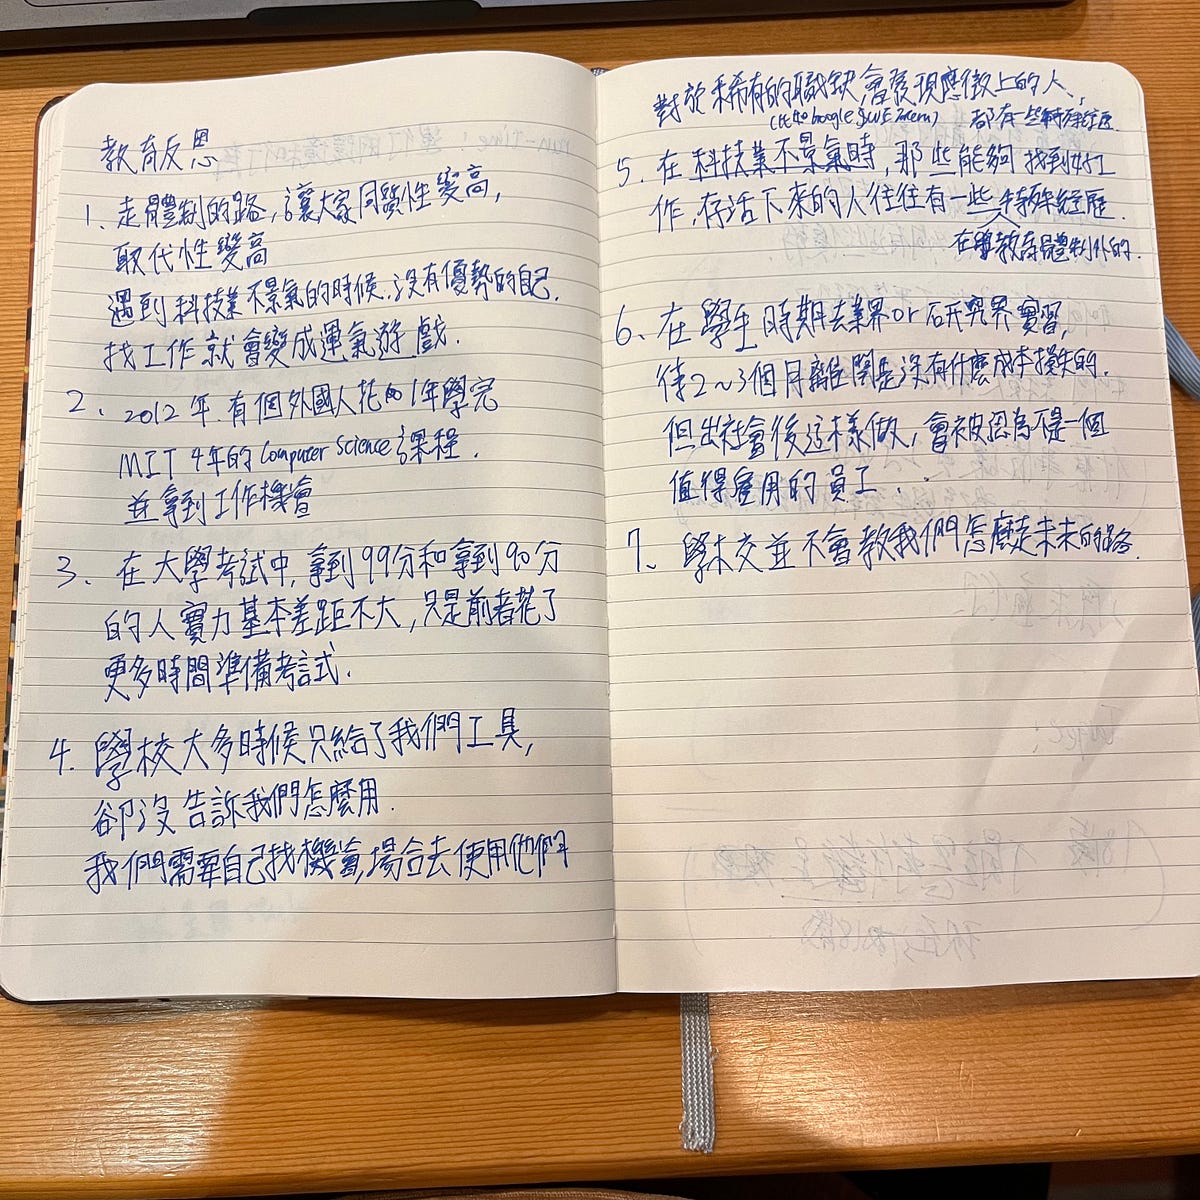 教育反思
1. 走體制的路,讓大家同質性變高,
取代性變高
遇到科技業不景氣的時候.沒有優勢的自己.
找工作就會變成運氣遊戲.
2. 2012年.有個外國人花了1年學完
MIT 4年的Computer Science課程.
並拿到工作機會
3. 在大學考試中,拿到99分和拿到90分
的人實力基本差距不大,只是前者花了
更多時間準備考試.
4. 學校大多時候只給了我們工具,
卻沒告訴我們怎麼用.
我們需要自己找機會,場合去使用他們
對於稀有的職缺,會發現應徵上的人..
(比如Google SWE Intern) 都有一些特殊經歷.
5. 在科技業不景氣時,那些能夠找到好工
作,存活下來的人往往有一些特殊經歷.
在學教育體制外的.
6. 在學生時期去業界or研究界實習,
待2~3個月離開是沒有什麼成本損失的.
但出社會後這樣做,會被認為不是一個
值得雇用的員工...
7. 學校並不會教我們怎麼走未來的路.